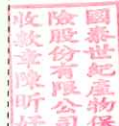 國泰世紀產物保
險股份有限公司
收款章陳昕妤